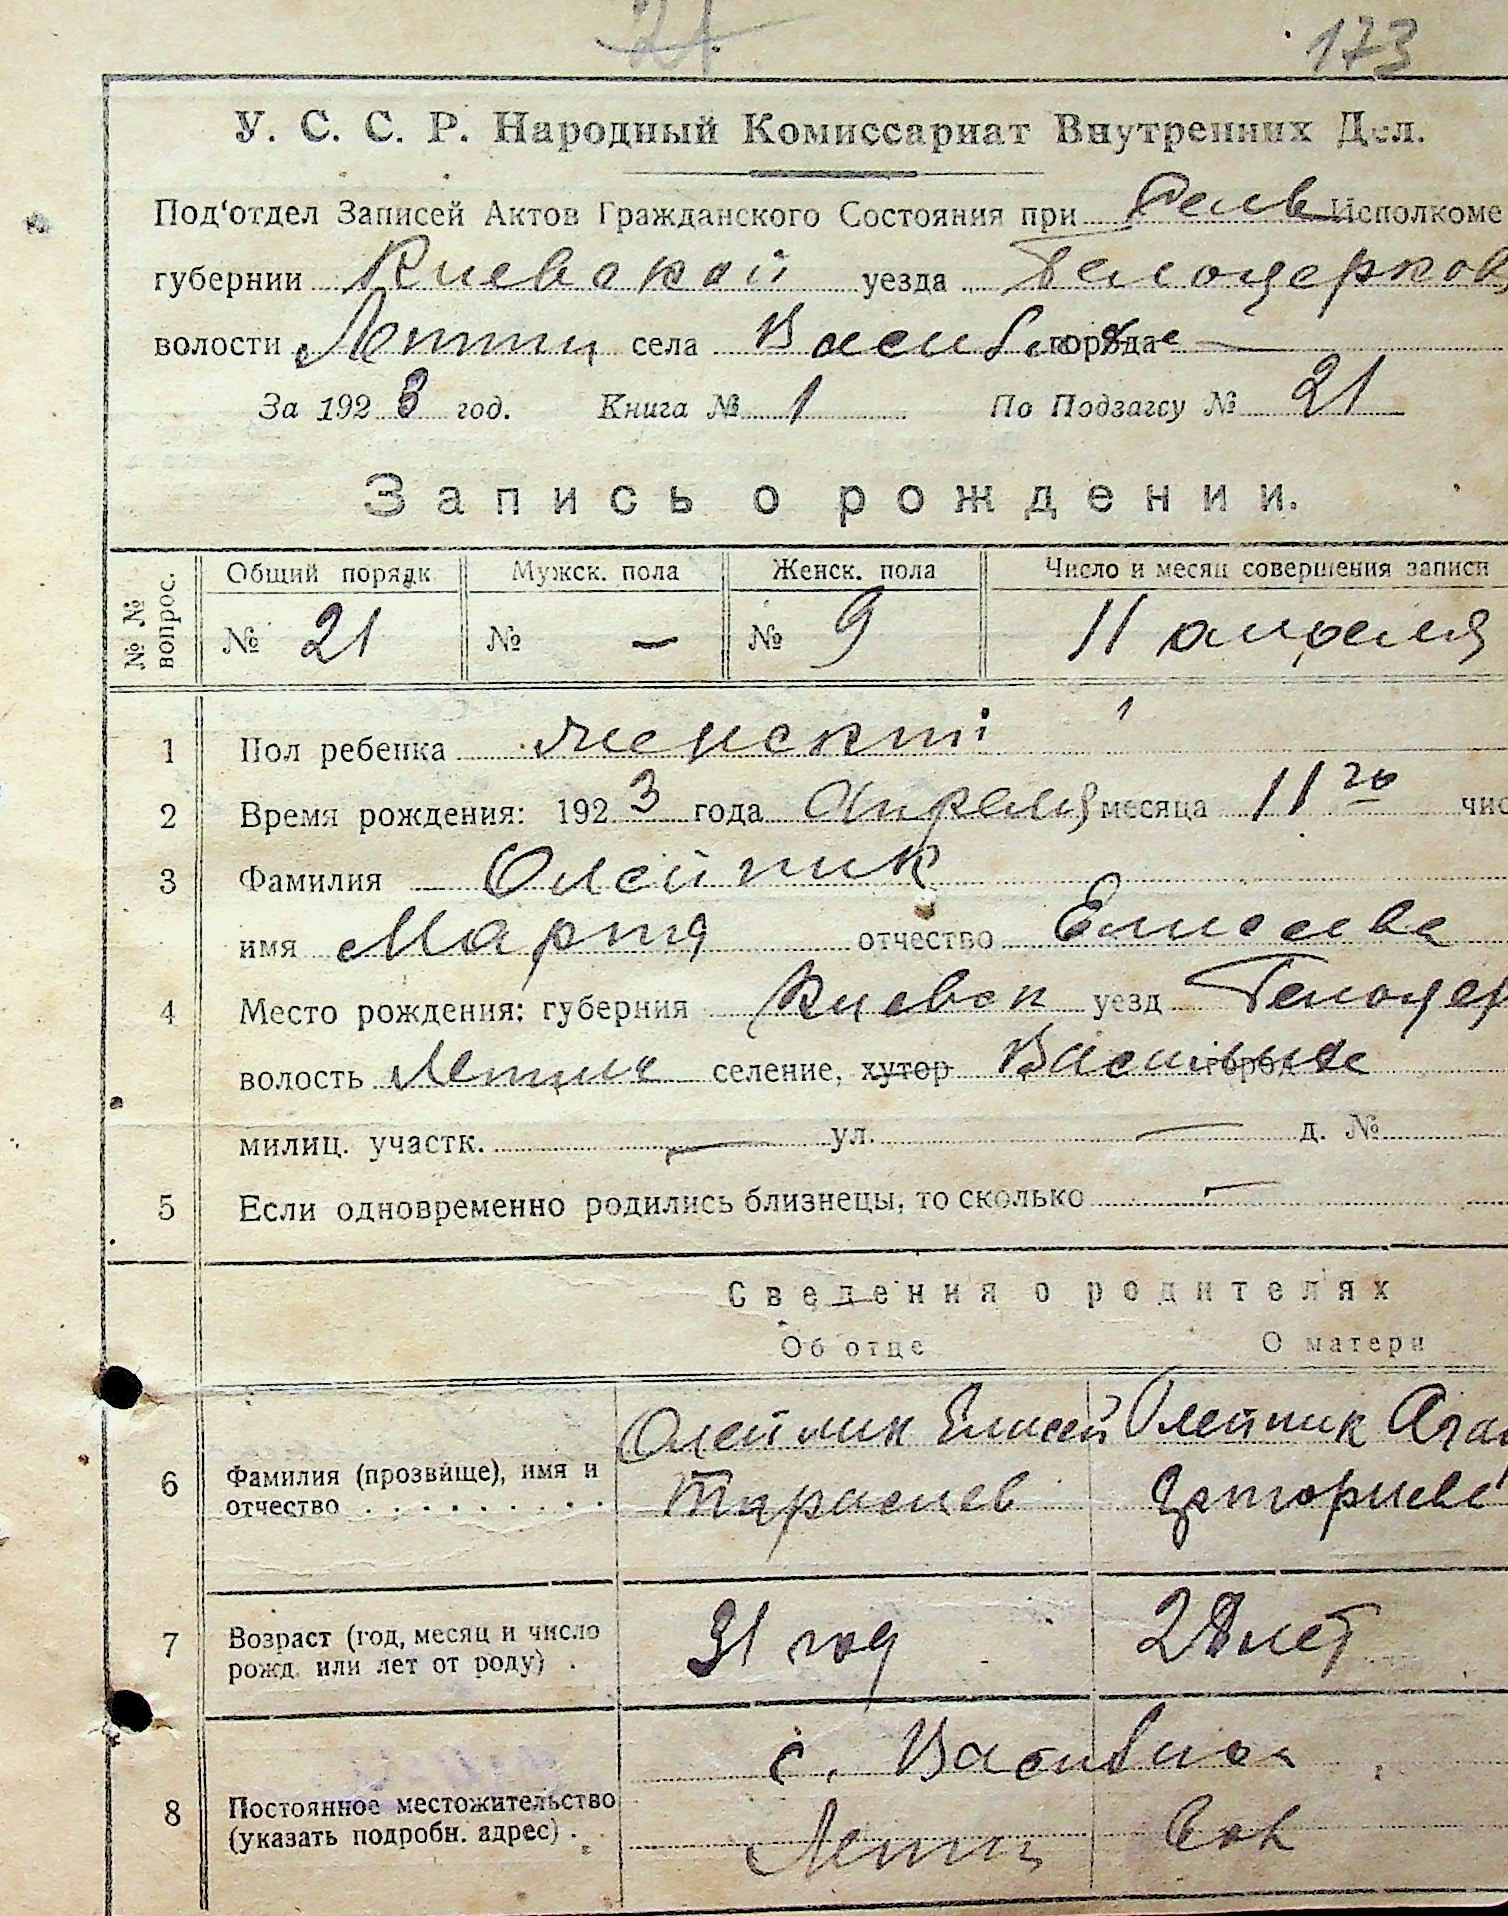 21
173
У. С. С. Р. Народный Комиссариат Внутренних Дел.
Под'отдел Записей Актов Гражданского Состояния при Сель Исполкоме
губернии Киевской уезда Белоцерков
волости села города
За 1923 год. Книга № 1 По Подзагсу № 21
Запись о рождении.
№ № вопрос. Общий порядк Мужск. пола Женск. пола Число и месяц совершения записи
№ 21 № — № 9 11 апреля
1 Пол ребенка женский
2 Время рождения: 1923 года Апреля месяца 11го чис
3 Фамилия Олейник
имя Марта отчество Елисеева
4 Место рождения: губерния Киевск уезд Белоцер
волость селение, хутор город
милиц. участк. — ул. — д. №
5 Если одновременно родились близнецы, то сколько —
Сведения о родителях
Об отце О матери
Олейник Елисей Олейник Агаф
6 Фамилия (прозвище), имя и
отчество . . . . . . . . .
7 Возраст (год, месяц и число
рожд. или лет от роду) . 31 год 28 лет
с.
8 Постоянное местожительство
(указать подробн. адрес) .